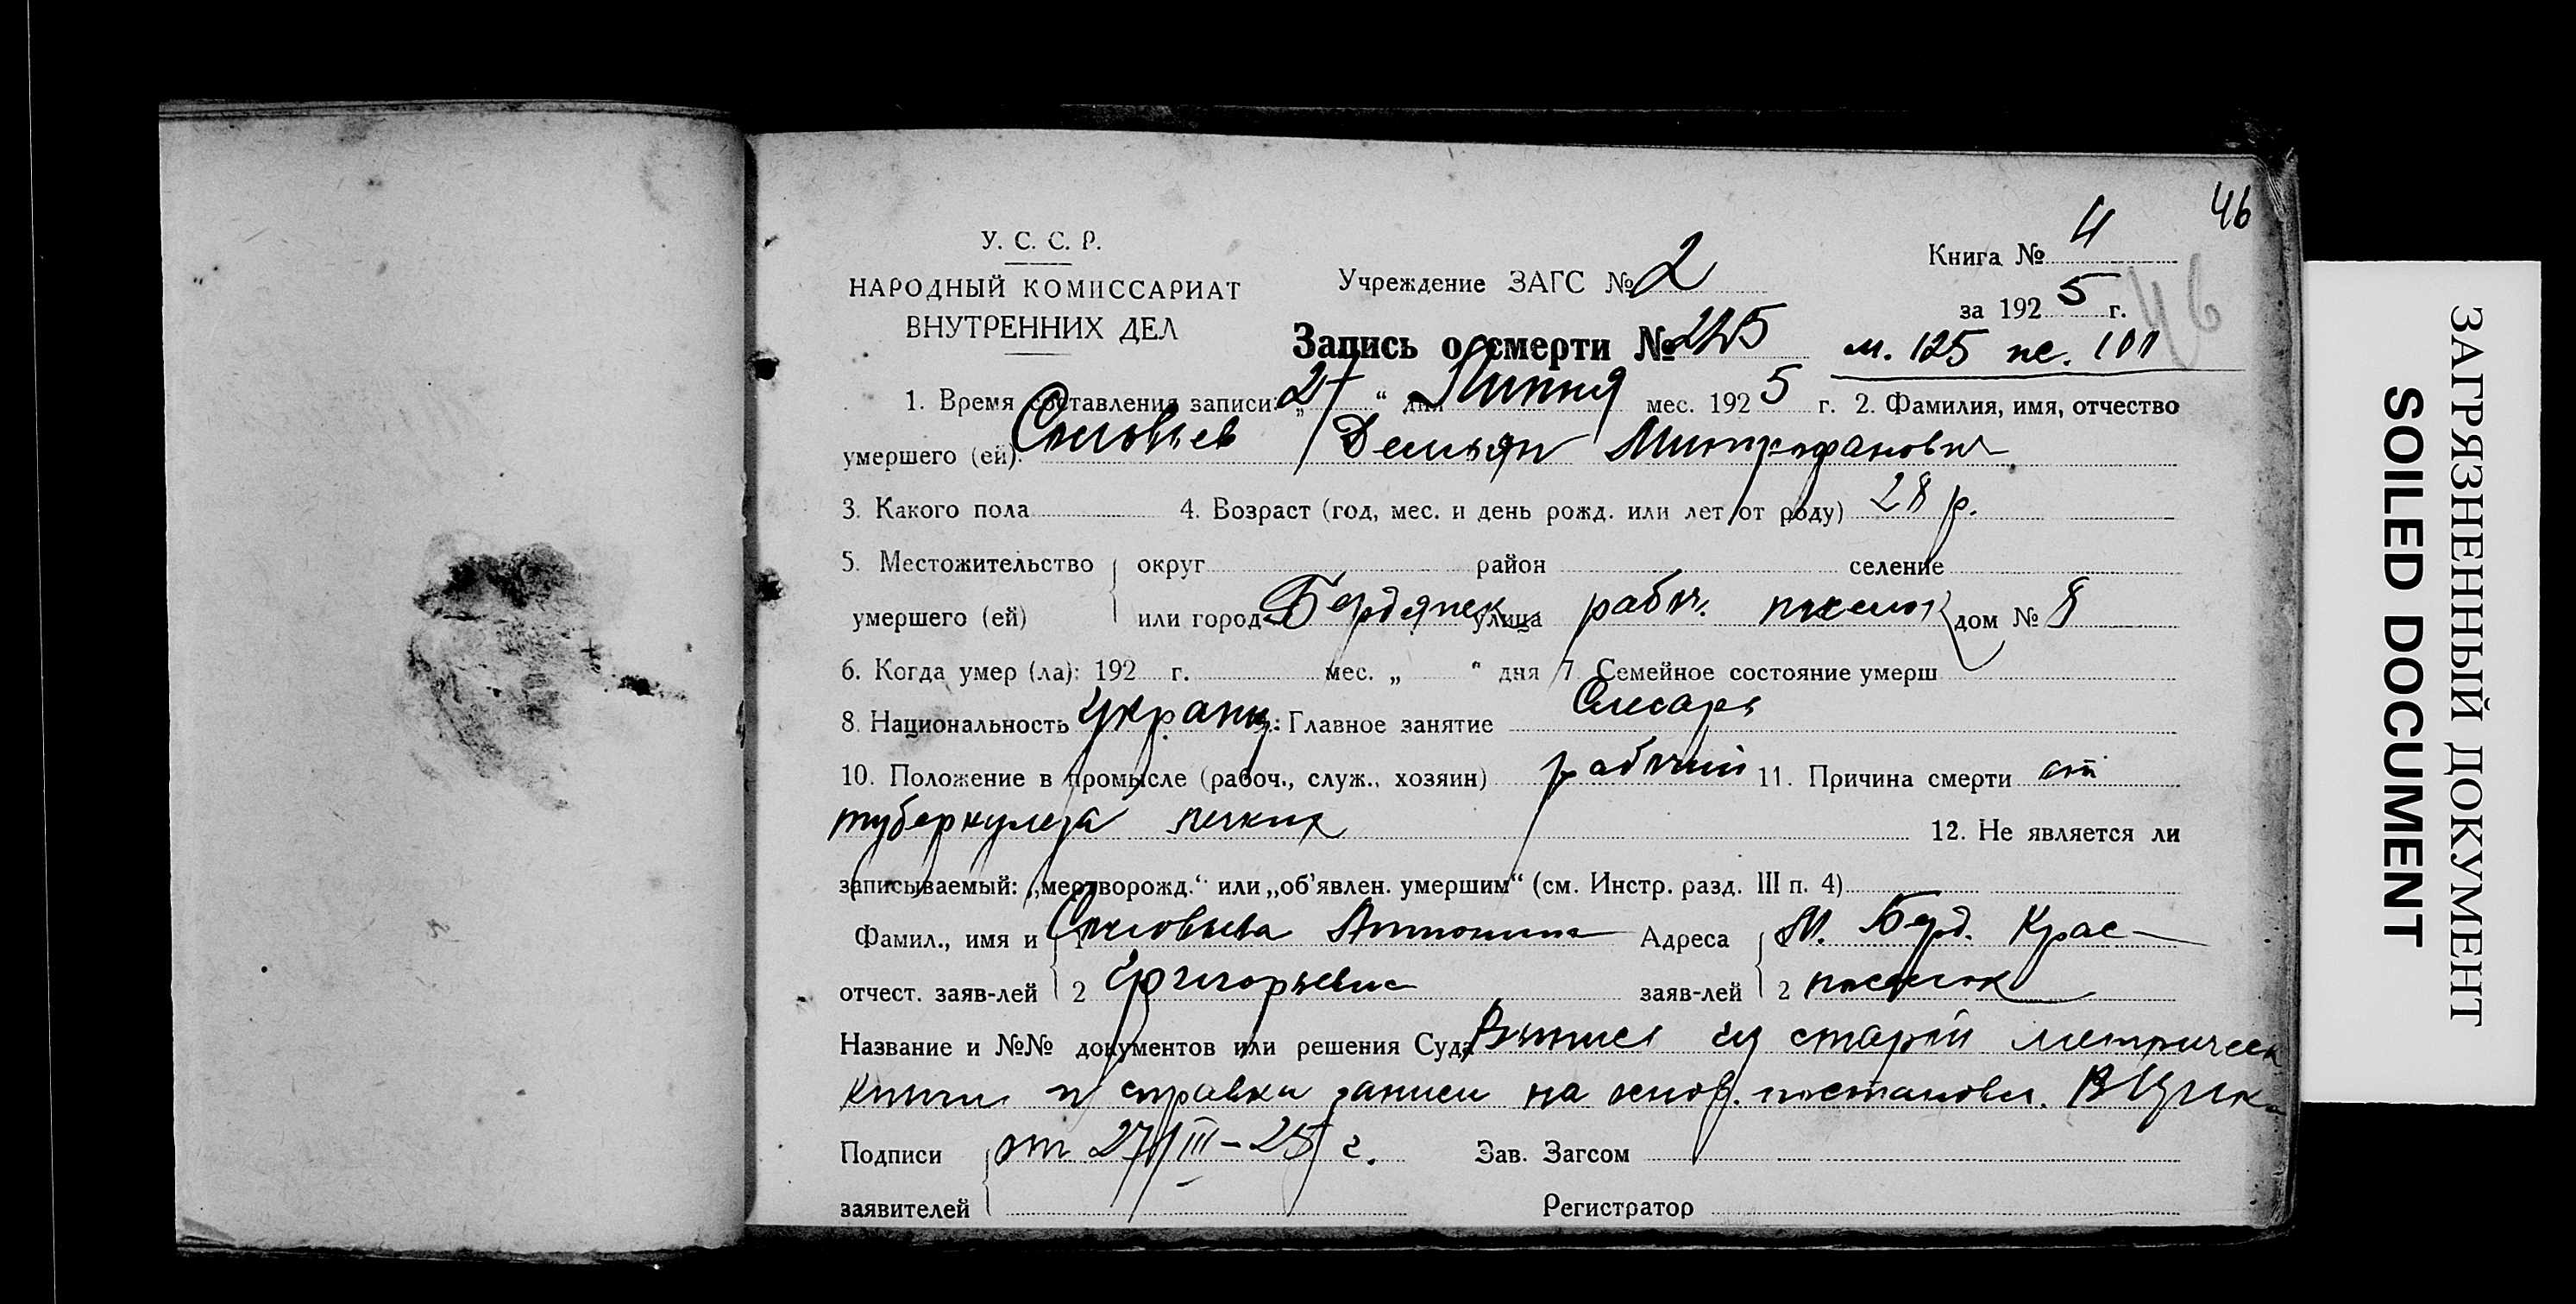 46
У. С. С. Р.
НАРОДНЫЙ КОМИССАРИАТ
ВНУТРЕННИХ ДЕЛ
Учреждение ЗАГС № 2
Книга № 4
за 192 5 г.
46
Запись о смерти № 225
м. 125 пс. 101
1. Время составления записи: „ 27 “ дня Липня мес. 192 5 г. 2. Фамилия, имя, отчество
умершего (ей): Соловьев Демьян Митрофанович
3. Какого пола 4. Возраст (год, мес. и день рожд. или лет от роду) 28 р.
5. Местожительство округ район селение
умершего (ей) или город Бердянск улица рабоч. поселок дом № 8
6. Когда умер (ла): 192 г. мес. „ “ дня 7 Семейное состояние умерш
8. Национальность украин. : Главное занятие Слесарь
10. Положение в промысле (рабоч., служ., хозяин) рабочий 11. Причина смерти от
туберкулеза легких 12. Не является ли
записываемый: „мертворожд.“ или „об’явлен. умершим“ (см. Инстр. разд. III п. 4)
Фамил., имя и 1 Соловьева Антонина Адреса М. Берд. Крас
отчест. заяв-лей 2 Григорьевна заяв-лей 2 поселок
Название и №№ документов или решения Суда Выпись из старой метрическ
книги и справки записи на основ. постановл. ВЦИК
Подписи от 27/III-25 г. Зав. Загсом
заявителей Регистратор
ЗАГРЯЗНЕННЫЙ ДОКУМЕНТ
SOILED DOCUMENT